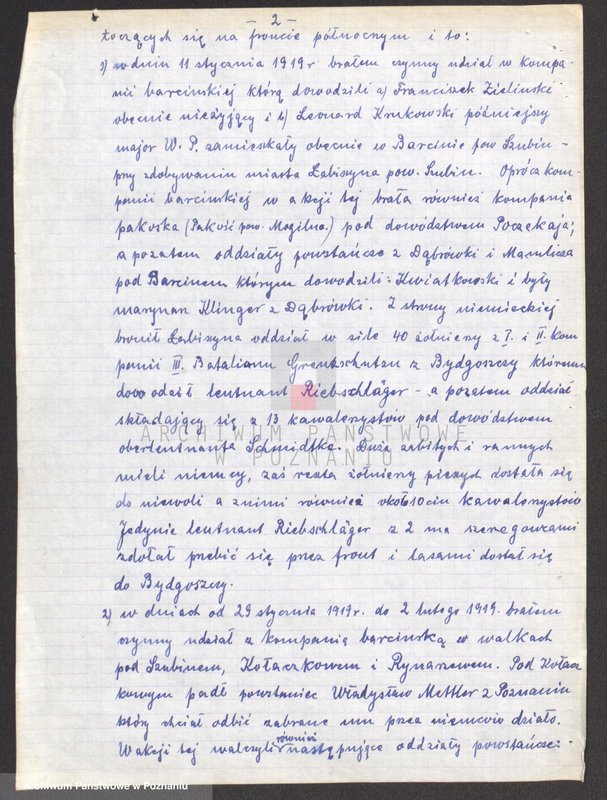 - 2 -
toczących się na froncie północnym i to:
1) w dniu 11 stycznia 1919 r brałem czynny udział w kompa-
nii barcińskiej którą dowodzili a) Franciszek Zieliński
obecnie nieżyjący i b) Leonard Krukowski późniejszy
major W. P. zamieszkały obecnie w Barcinie pow Szubin -
przy zdobywaniu miasta Łabiszyna pow. Szubin. Oprócz kom-
panii barcińskiej w akcji tej brała również kompania
pakoska (Pakość pow. Mogilno.) pod dowództwem Poczekaja;
a pozatem oddziały powstańcze z Dąbrówki i Mamlicza
pod Barcinem którym dowodzili: Kwiatkowski i były
marynarz Klinger z Dąbrówki. Z strony niemieckiej
bronił Łabiszyna oddział w sile 40 żołnierzy z I. i II. kom
panii III. Batalionu Grentzschutzu z Bydgoszczy któremu
dowodził leutnant Riebschläger - a pozatem oddział
składający się z 13 kawalerystów pod dowództwem
oberleutnanta Schmidtke. Dużo zabitych i rannych
mieli niemcy, zaś reszta żołnierzy pieszych dostała się
do niewoli a z nimi również około 10ciu kawalerystów
Jedynie leutnant Riebschläger z 2 ma szeregowcami
zdołał przebić się przez front i lasami dostał się
do Bydgoszczy.
2) w dniach od 29 stycznia 1919r. do 2 lutego 1919. brałem
czynny udział z kompanią barcińską w walkach
pod Szubinem, Kołaczkowem i Rynarzewem. Pod Kołacz
kowym padł powstaniec Władysław Mettler z Poznania
który chciał odbić zabrane mu przez niemców działo.
W akcji tej walczyli również następujące oddziały powstańcze:
ARCHIWUM PAŃSTWOWE
W POZNANIU
Archiwum Państwowe w Poznaniu